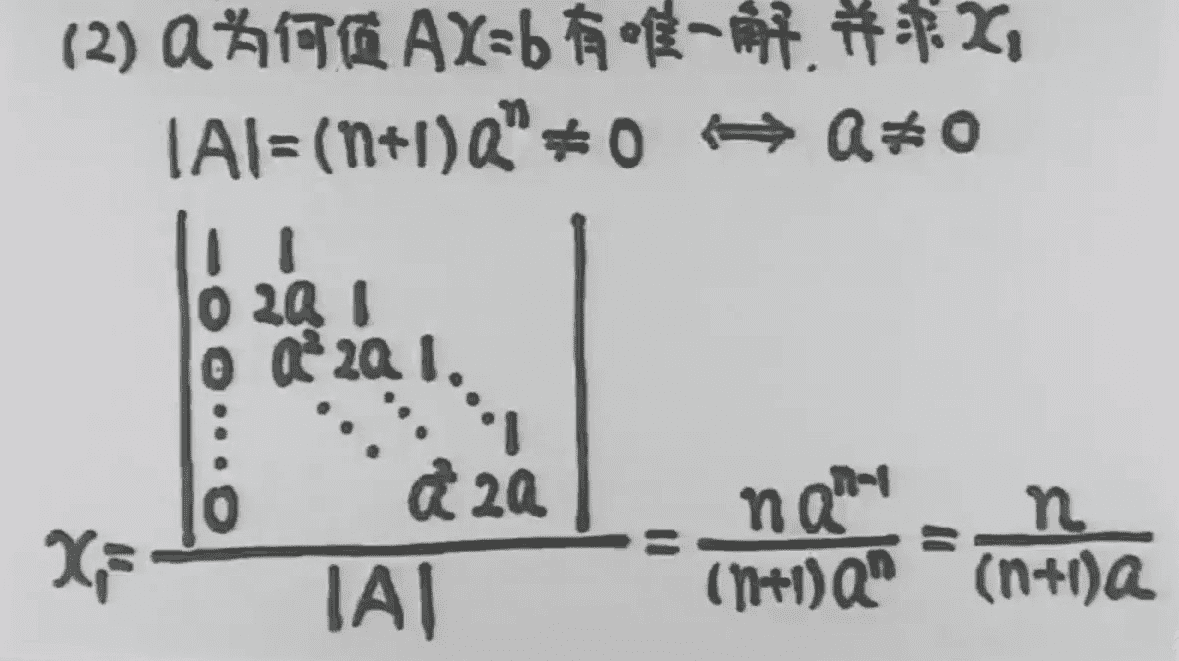 (2) a为何值 AX=b 有唯一解. 并求 x₁
|A|=(n+1)aⁿ≠0 ⟺ a≠0
1 1
0 2a 1
0 a² 2a 1 ⋱
⋮ ⋱ ⋱ 1
0 a² 2a
x₁= |A| = naⁿ⁻¹ / (n+1)aⁿ = n / (n+1)a